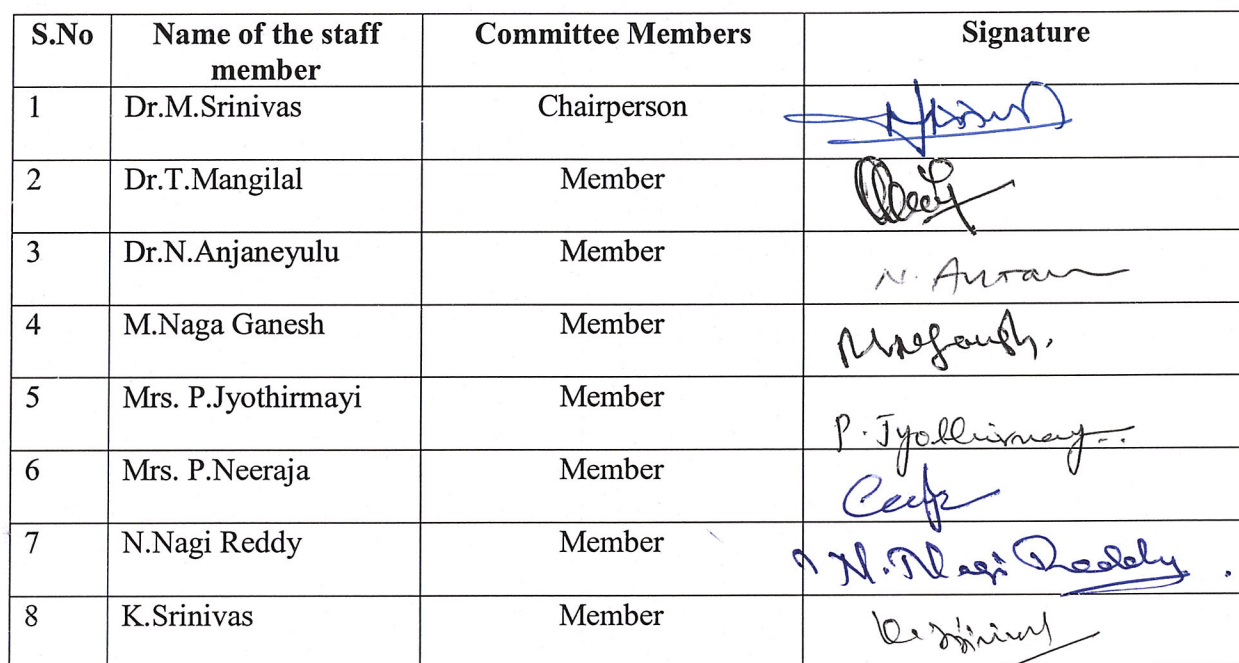 S.No Name of the staff member Committee Members Signature
1 Dr.M.Srinivas Chairperson
2 Dr.T.Mangilal Member
3 Dr.N.Anjaneyulu Member
4 M.Naga Ganesh Member
5 Mrs. P.Jyothirmayi Member P. Jyothirmay
6 Mrs. P.Neeraja Member
7 N.Nagi Reddy Member N. Nagi Reddy
8 K.Srinivas Member